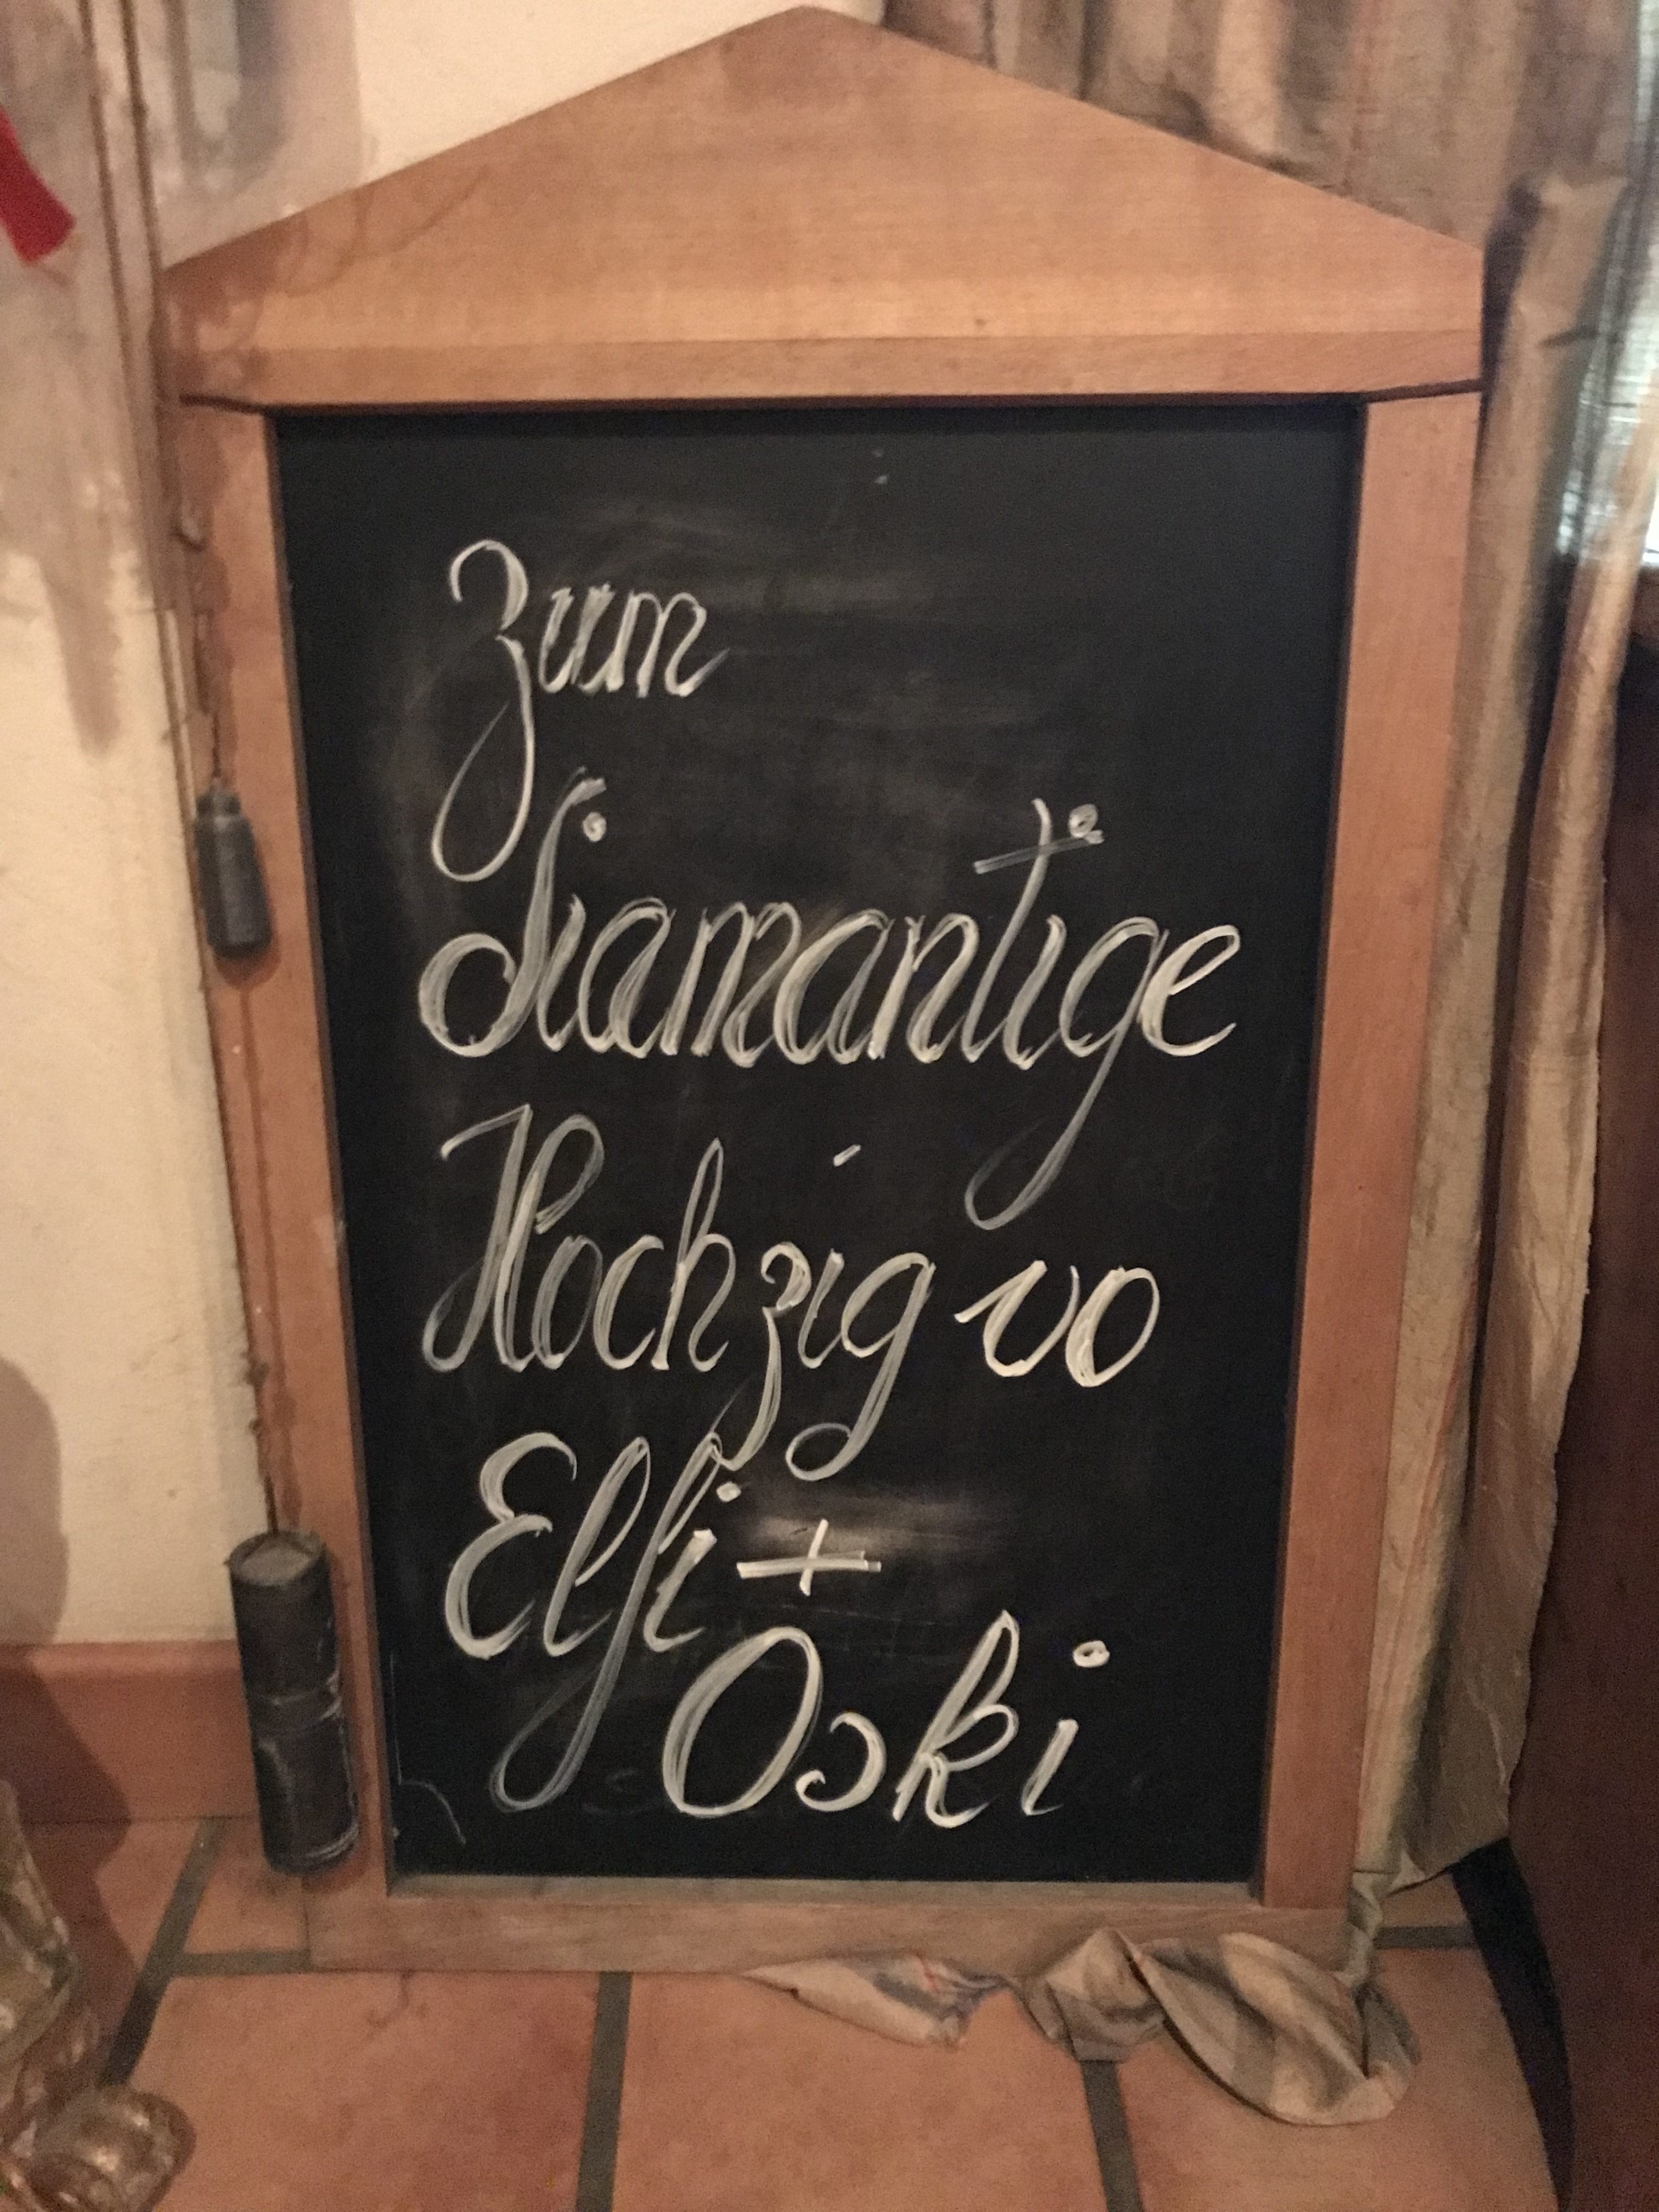 Zum
diamantige
Hochzig vo
Elfi +
Oski